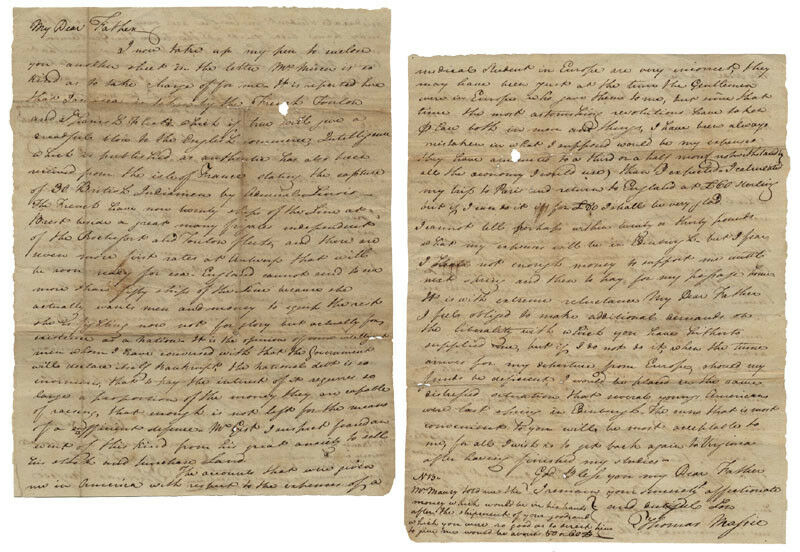 My Dear Father
I now take up my pen to enclose
you another check in the letter Mr is so
kind as to take charge of for me. It is reported here
that Jamaica is taken by the French Toulon
and Fleets which if true will give a
dreadful blow to the English commerce; Intelligence
which is published as authentic has also been
received from the isle of France stating the capture
of 30 British Indiamen by Admiral Linois
The French have now twenty ships of the Line at
Brest beside a great many frigates independent
of the Rochefort and Toulon fleets, and there are
seven more first rates at Antwerp that will
be soon ready for sea. England cannot send to sea
more than fifty ships of the Line because she
actually wants men and money to equip the rest
she is fighting now not for glory but actually for
existence as a Nation. It is the opinion of some intelligent
men whom I have conversed with that the Government
will declare itself bankrupt. the national debt is so
enormous, that to pay the interest of it requires so
large a proportion of the money they are capable
of raising, that enough is not left for the means
of a sufficient defence. Mr I suspect feared an
event of this kind from his great anxiety to sell
his stock and purchase Land.
The accounts that were given
me in America with respect to the expenses of a
medical Student in Europe are very incorrect; they
may have been just at the time the Gentlemen
were in Europe who gave them to me, but since that
time the most astonishing revolutions have taken
place both in men and things, I have been always
mistaken in what I supposed would be my expenses
they have amounted to a third or a half more (notwithstanding
all the economy I could use) than I expected. I calculated
my trip to Paris and return to England at £60 Sterling
but if I can do it for I shall be very glad
I cannot tell perhaps within twenty or thirty pounds
what my expenses will be in Edinburgh but I fear
I shall not enough money to support me until
next spring and then to pay for my passage home
It is with extreme reluctance My Dear Father
I feel obliged to make additional demands on
the liberality with which you have hitherto
supplied me, but if I do not do it, when the time
arrives for my departure from Europe, should my
funds be deficient I would be placed in the same
distressed situation that several young Americans
were last spring in Edinburgh. The sum that is most
convenient to you will be most acceptable to
me, for all I wish is to get back again to Virginia
after having finished my studies—
God bless you my Dear Father
I remain your sincerely affectionate
and dutiful Son
Thomas Massie
N.B.—
Mr Maury told me the
money which would be in his hands
after the shipment of your goods and
which you were so good as to direct him
to give me would be about 50 or 60 £